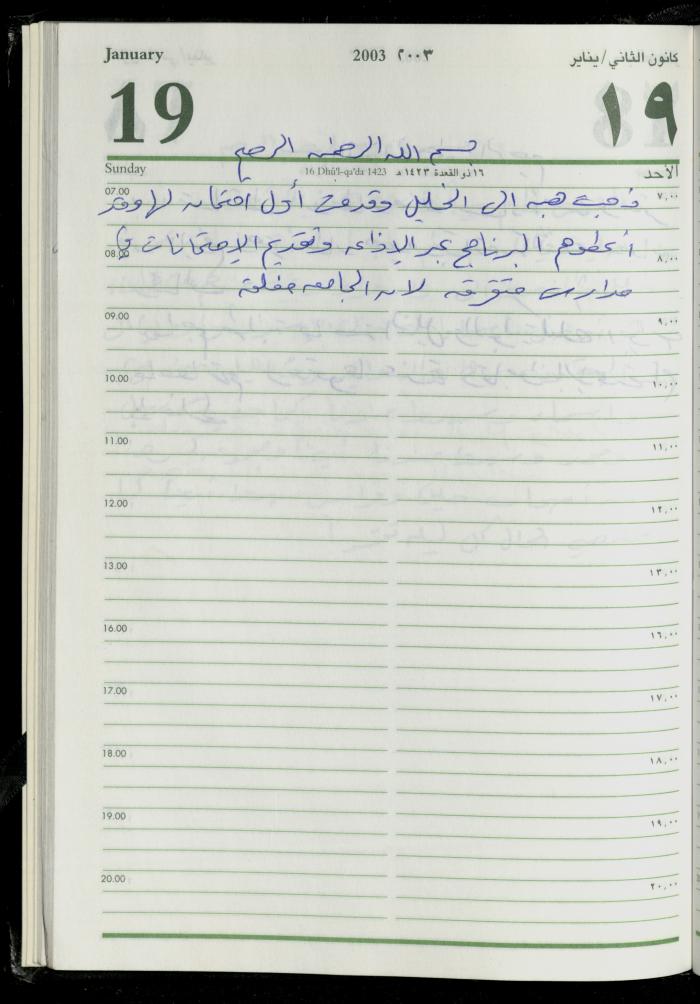 January 2003 ٢٠٠٣ كانون الثاني/يناير
19 ١٩
بسم الله الرحمن الرحيم
Sunday 16 Dhū'l-qa'da 1423 ١٦ ذو القعدة ١٤٢٣ هـ الأحد
07.00 ٧,٠٠
ذهبت هبه الى الخليل وقدمت أول امتحان لها وقد
أعطوهم البرنامج عبر الإذاعه وتقديم الإمتحانات في
08.00 ٨,٠٠
مدارس متفرقه لان الجامعه مغلقة
09.00 ٩,٠٠
10.00 ١٠,٠٠
11.00 ١١,٠٠
12.00 ١٢,٠٠
13.00 ١٣,٠٠
16.00 ١٦,٠٠
17.00 ١٧,٠٠
18.00 ١٨,٠٠
19.00 ١٩,٠٠
20.00 ٢٠,٠٠